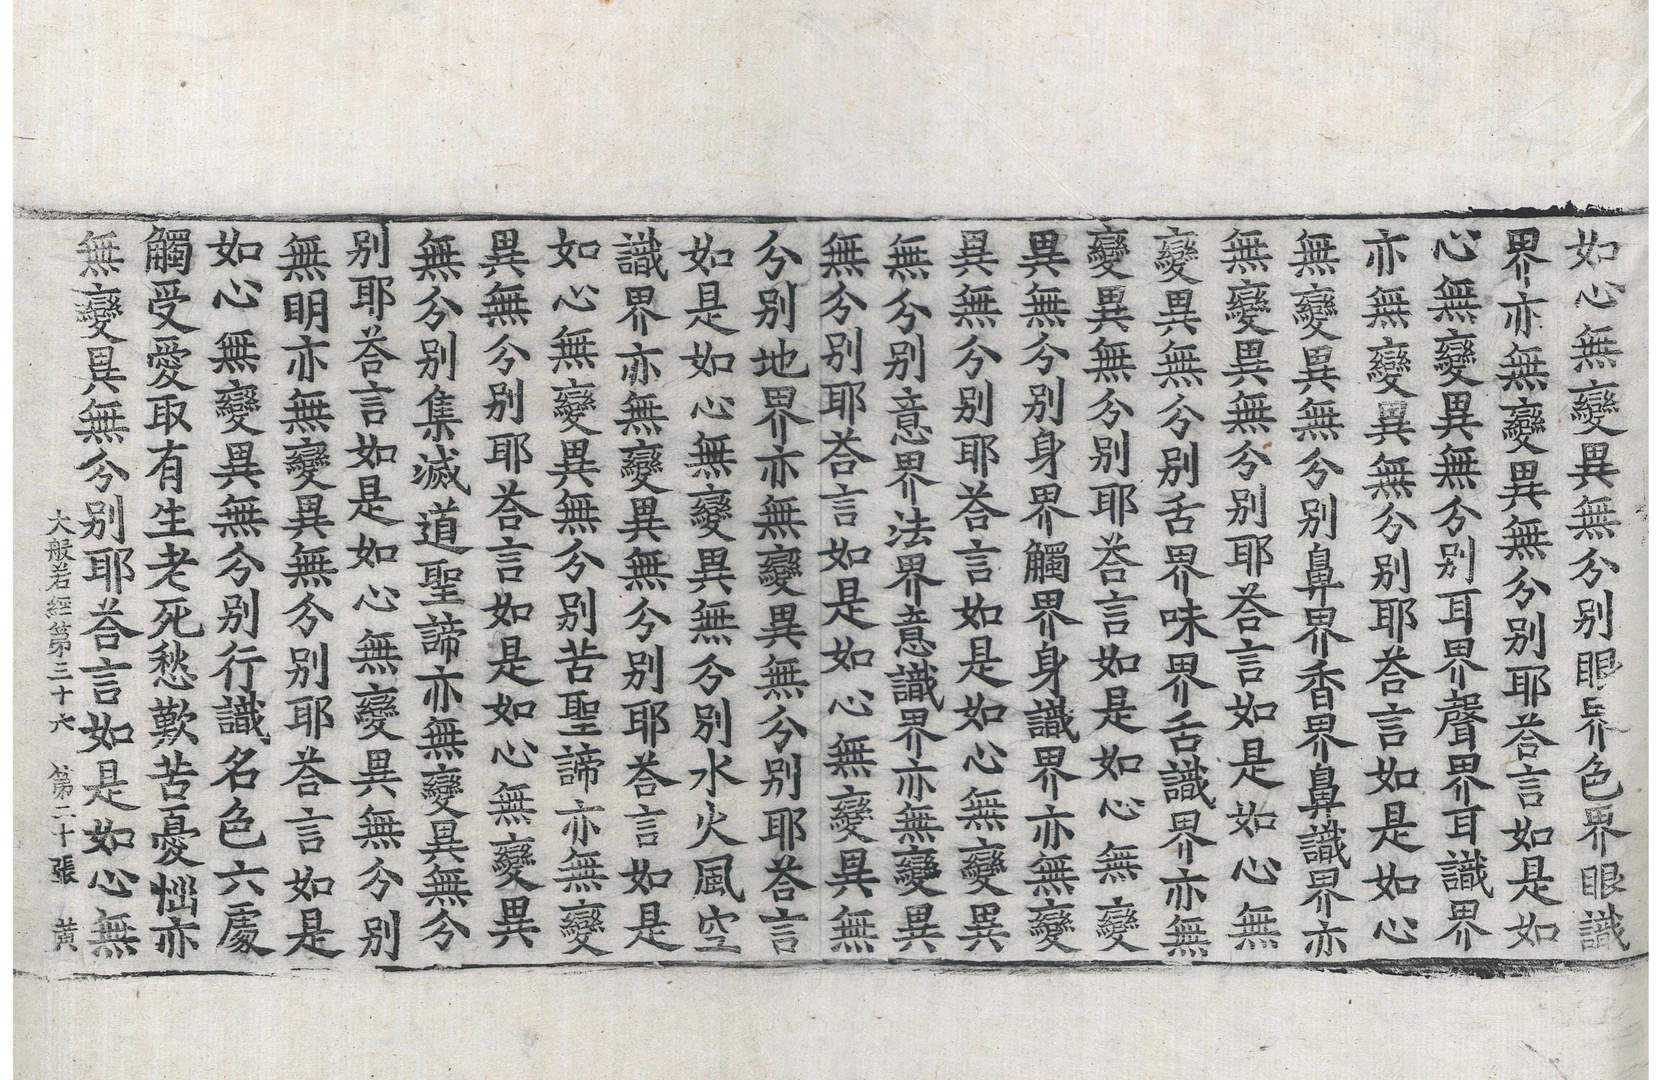 如心無變異無分別眼界色界眼識
界亦無變異無分別耶荅言如是如
心無變異無分別耳界聲界耳識界
亦無變異無分別耶荅言如是如心
無變異無分別鼻界香界鼻識界亦
無變異無分別耶荅言如是如心無
變異無分別舌界味界舌識界亦無
變異無分別耶荅言如是如心無變
異無分別身界觸界身識界亦無變
異無分別耶荅言如是如心無變異
無分別意界法界意識界亦無變異
無分別耶荅言如是如心無變異無
分別地界亦無變異無分別耶荅言
如是如心無變異無分別水火風空
識界亦無變異無分別耶荅言如是
如心無變異無分別苦聖諦亦無變
異無分別耶荅言如是如心無變異
無分別集滅道聖諦亦無變異無分
別耶荅言如是如心無變異無分別
無明亦無變異無分別耶荅言如是
如心無變異無分別行識名色六處
觸受愛取有生老死愁歎苦憂惱亦
無變異無分別耶荅言如是如心無
大般若經第三十六 第二十張 黃